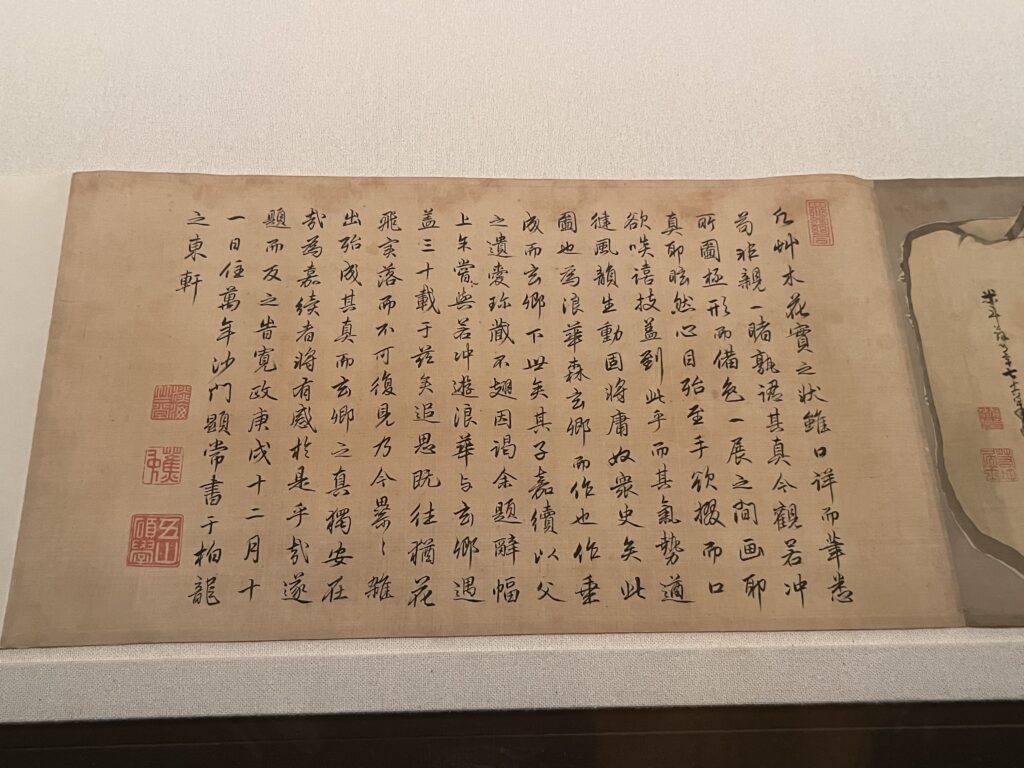 凡艸木花實之状雖口详而筆悉
苟非親一睹孰認其真今觀若冲
所圖極形而備色一展之間画耶
真耶眩然心目殆至手欲掇而口
欲啖譆技益到此乎而其氣勢遒
健風韻生動固將庸奴衆史矣此
圖也為浪華森玄郷而作也作垂
成而玄郷下世矣其子嘉續以父
之遺愛珍蔵不翅因謁余題辭幅
上矣嘗與若冲遊浪華与玄郷遇
盖三十載于茲矣追思既往猶花
飛実落而不可復見乃今纍〻雜
出殆成其真而玄郷之真獨安在
哉為嘉續者將有感於是乎哉遂
題而反之旹寛政庚戌十二月十
一日住萬年沙門顕常書于栢龍
之東軒
蕉中
五山碩學